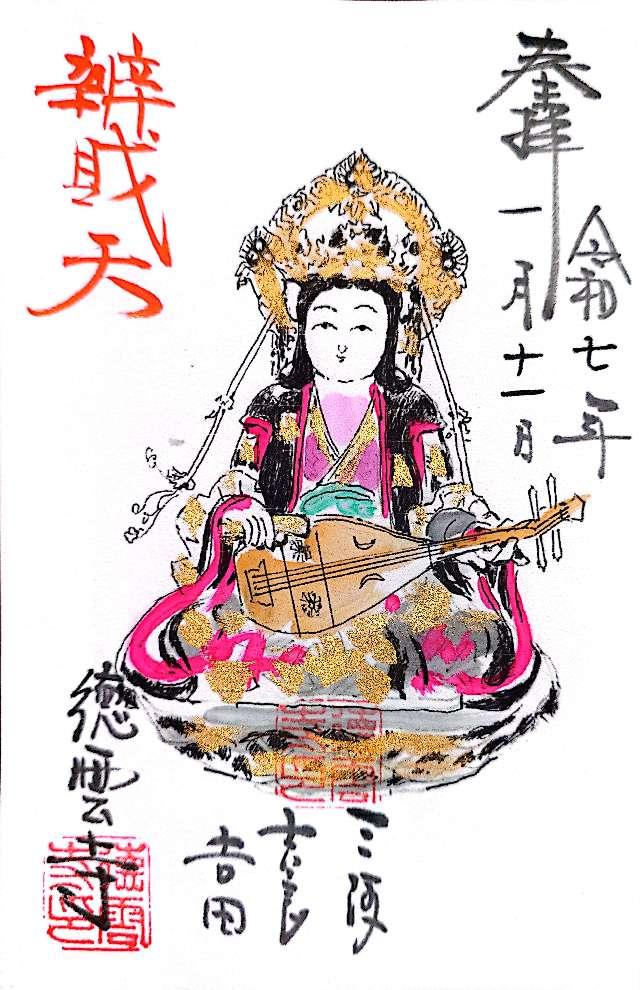 奉拝
令和七年
一月十一日
辨財天
三河
吉良
吉田
徳雲寺